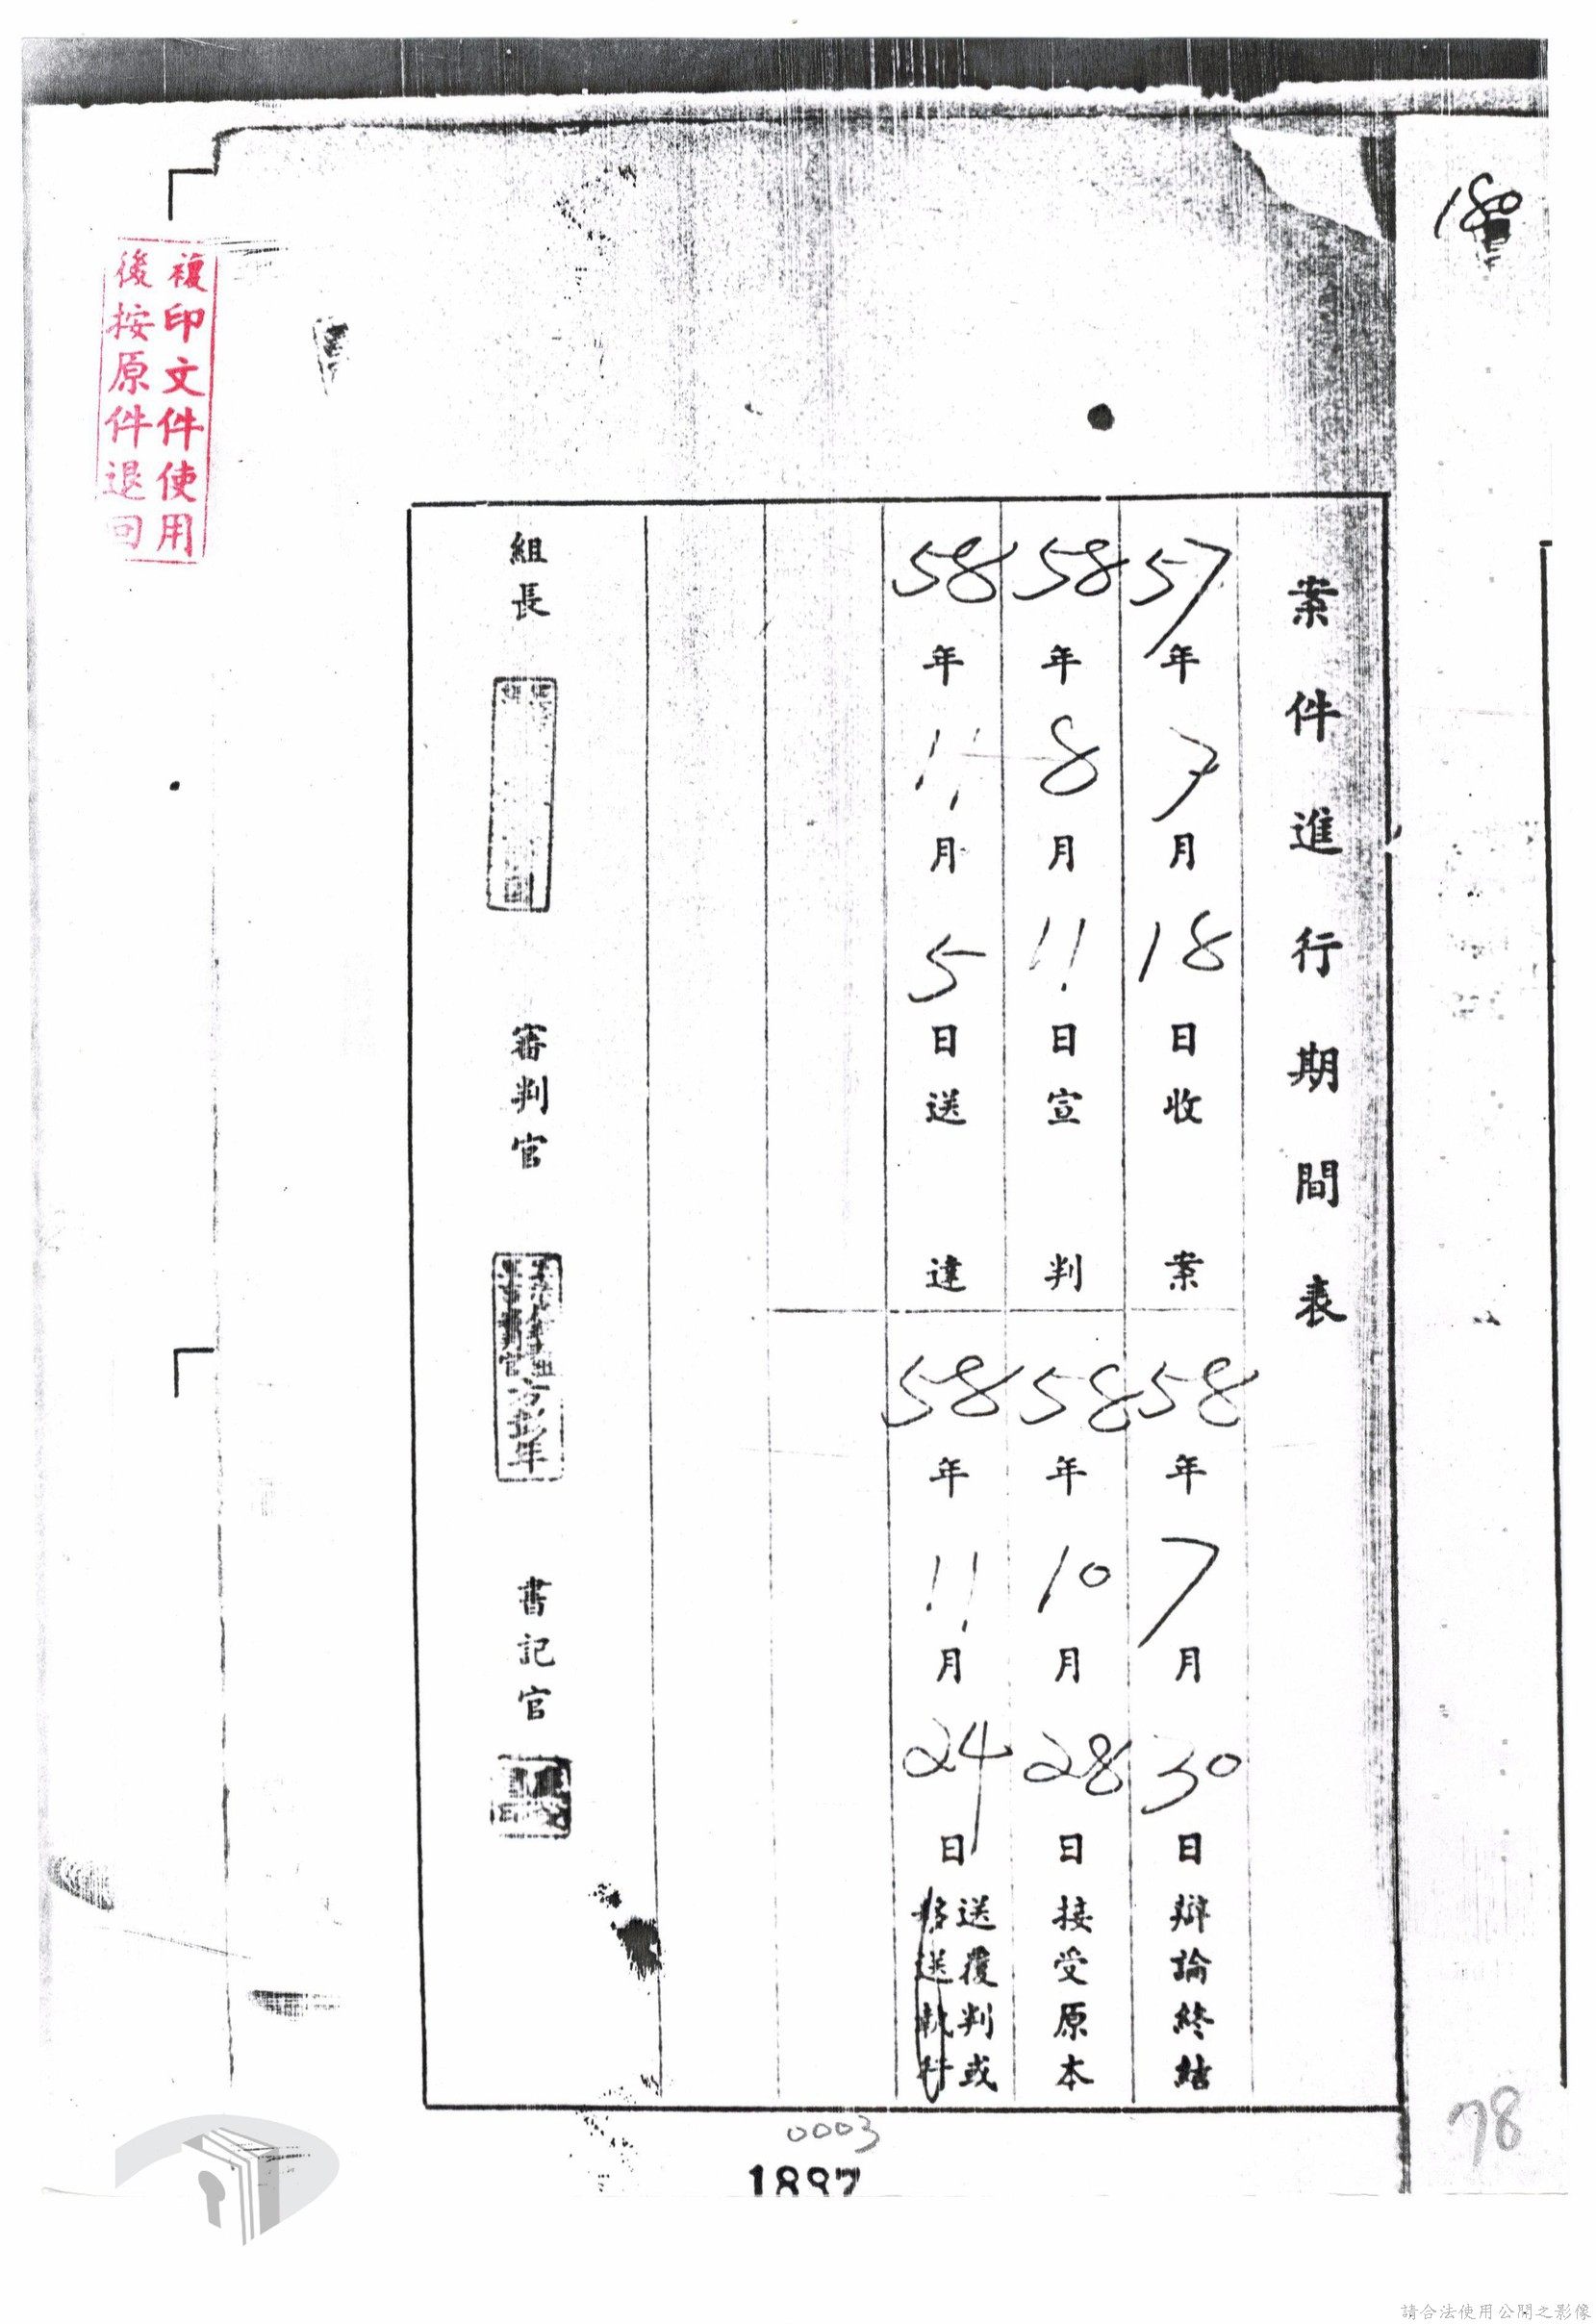 案件進行期間表
57年7月18日收案
58年7月30日辯論終結
58年8月11日宣判
58年10月28日接受原本
58年11月5日送達
58年11月24日送覆判或
移送執行
組長
審判官
方彭年
書記官
複印文件使用
後按原件退回
78
0003
1897
請合法使用公開之影像